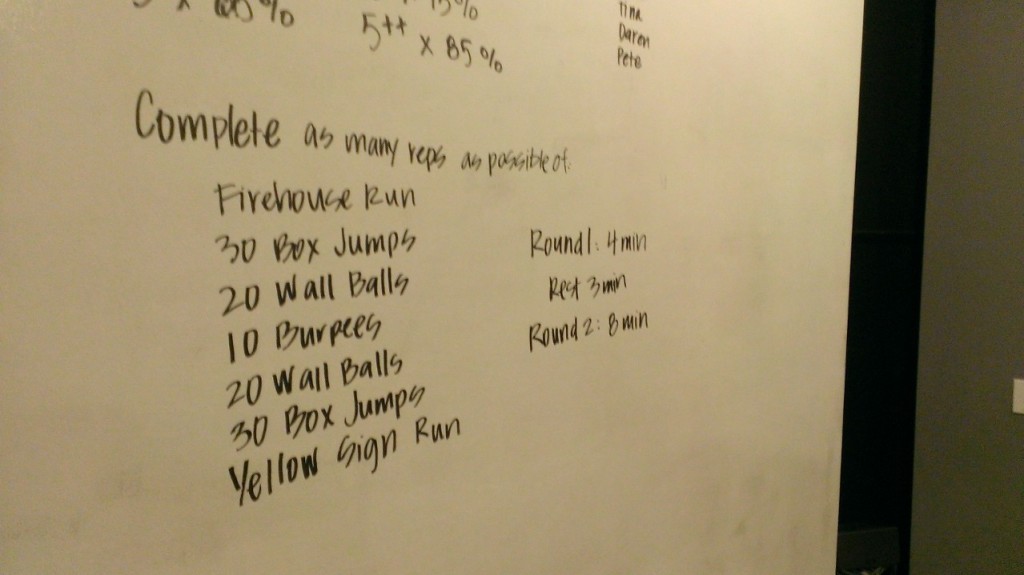 x 65%
15%
5++ x 85%
Tina
Daren
Pete
Complete as many reps as possible of:
Firehouse Run
30 Box Jumps
20 Wall Balls
10 Burpees
20 Wall Balls
30 Box Jumps
Yellow Sign Run
Round 1: 4 min
Rest 3 min
Round 2: 8 min